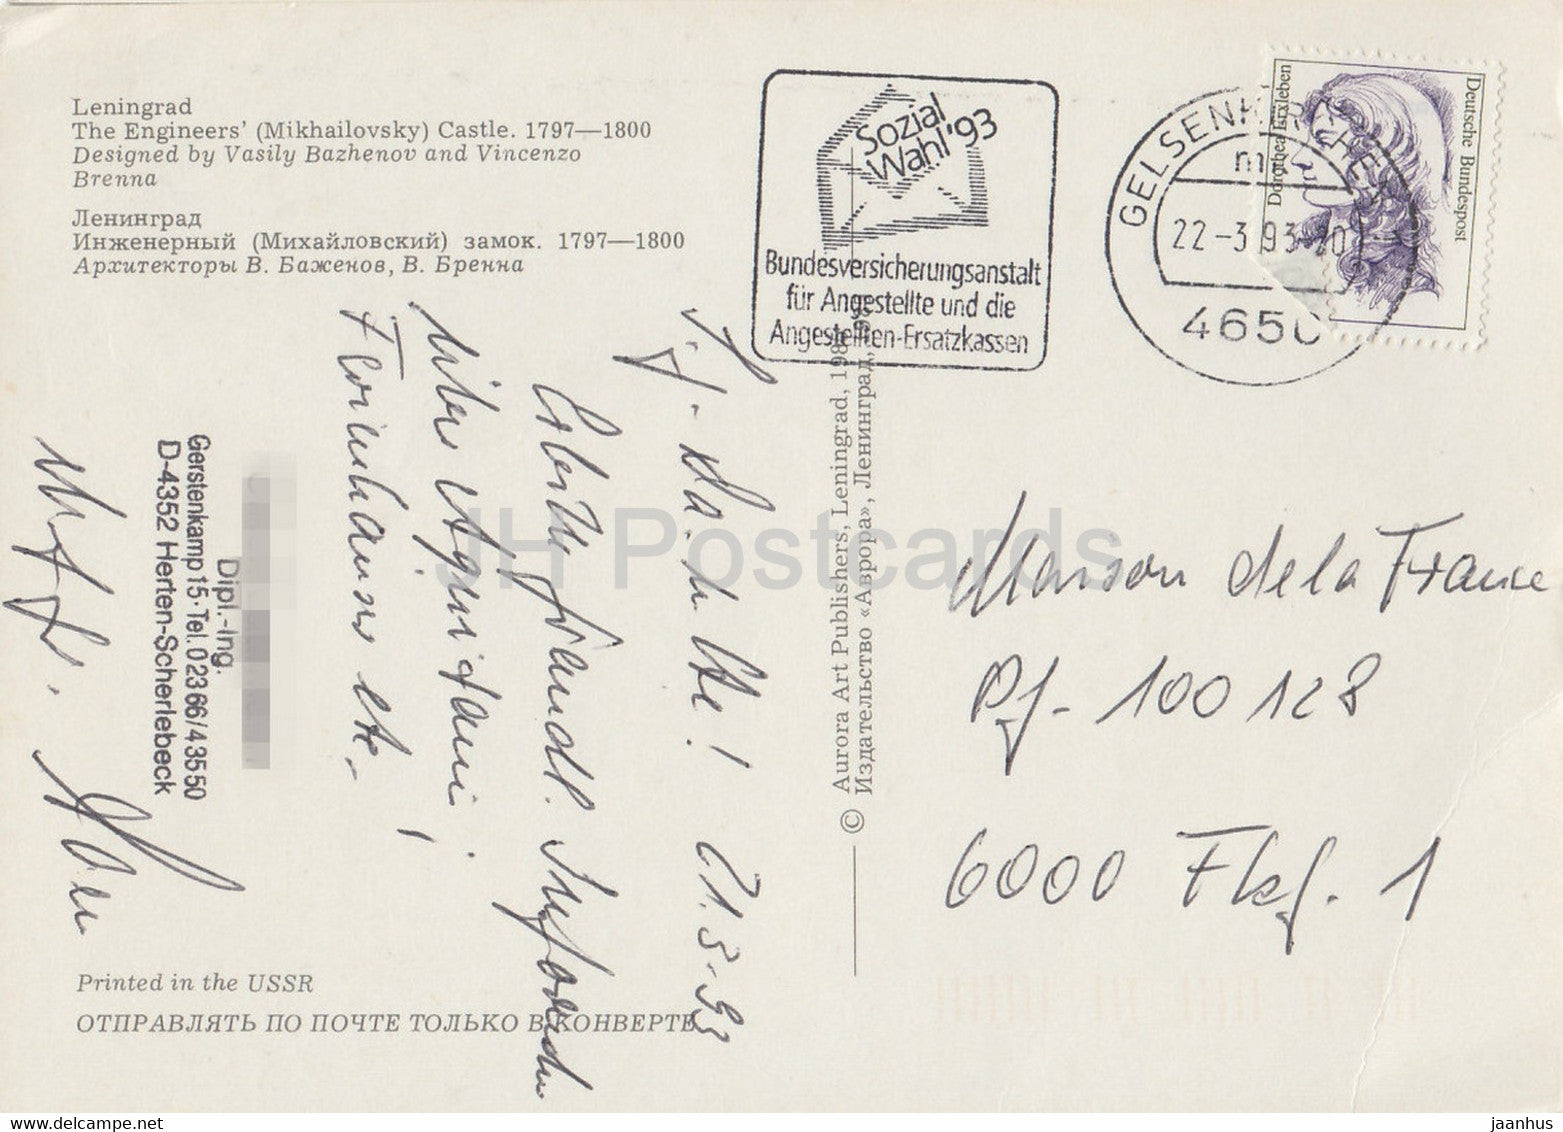 Leningrad
The Engineers' (Mikhailovsky) Castle. 1797—1800
Designed by Vasily Bazhenov and Vincenzo
Brenna
Ленинград
Инженерный (Михайловский) замок. 1797—1800
Архитекторы В. Баженов, В. Бренна
Sozial
Wahl '93
Bundesversicherungsanstalt
für Angestellte und die
Angestellten-Ersatzkassen
GELSENKIRCHEN
22-3.93
4650
Dorothea Erxleben
Deutsche Bundespost
21.3.93
Erbitte freundl.
über Aquitani!
Dipl.-Ing.
Gerstenkamp 15·Tel. 0 23 66/4 35 50
D-4352 Herten-Scherlebeck
© Aurora Art Publishers, Leningrad,
Издательство «Аврора», Ленинград,
Maison de la France
Pf- 100128
6000 Fkf. 1
Printed in the USSR
ОТПРАВЛЯТЬ ПО ПОЧТЕ ТОЛЬКО В КОНВЕРТЕ
JH Postcards
www.delcampe.net
jaanhus